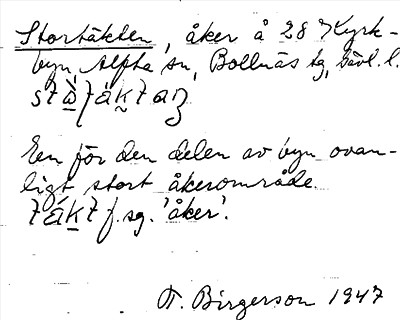 Stortäkten, åker å 28 Kyrk-
byn, Alfta sn, Bollnäs tg, Gävl. l.
En för den delen av byn ovan-
ligt stort åkerområde.
f. sg. 'åker'.
T. Birgerson 1947